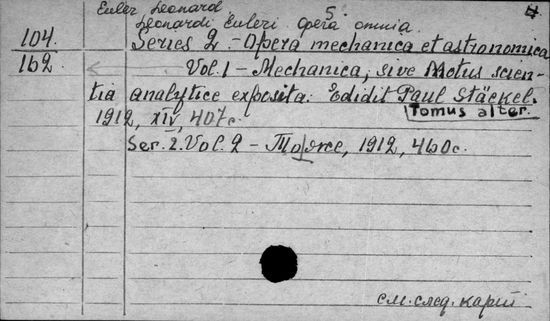 Euler Leonard. 5.
Leonardi Euleri Opera omnia.
104. Series 2. - Opera mechanica et astronomica
162 Vol. 1 - Mechanica, sive Motus scien-
tia analytice exposita. Edidit Paul Stäckel.
1912, XIV, 407c. Tomus alter.
Ser. 2. Vol. 2 - То же, 1912, 460c.
см. след. карт